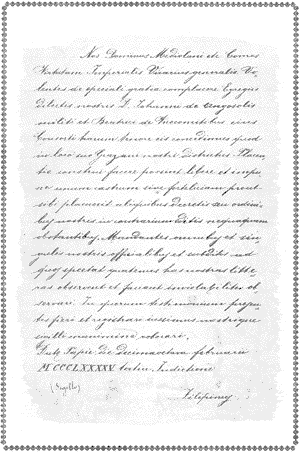 Nos Dominus Mediolani etc Comes
Virtutum Imperialis Vicarius generalis Vo
lentes de speciali gratia complacere Egregiis
dilectis nostris D. Iohanne de Angossolis
militi et Beatrice de Vicecomitibus eius
Consorti harum tenore eis concedimus quod
in loco sui Grazani nostri Districtus Placen
tie construi facere possint libere et impu
ne unum castrum sive fortilicium prout
sibi placuerit aliquibus Decretis seu ordini
bus nostris in contrarium editis nequaquam
obstantibus, Mandantes omnibus et sin
gulis nostris officialibus et subditis ad
quos spectat quatenus has nostras litte
ras observent et faciant inviolabiliter ob
servari. In quorum testimonium presen
tes fieri et registrari iussimus nostrique
sigilli munimine roborari.
Dat. Papie die decimoctavo februarii
MCCCLXXXXV tertia Indictione
(Sigillo)